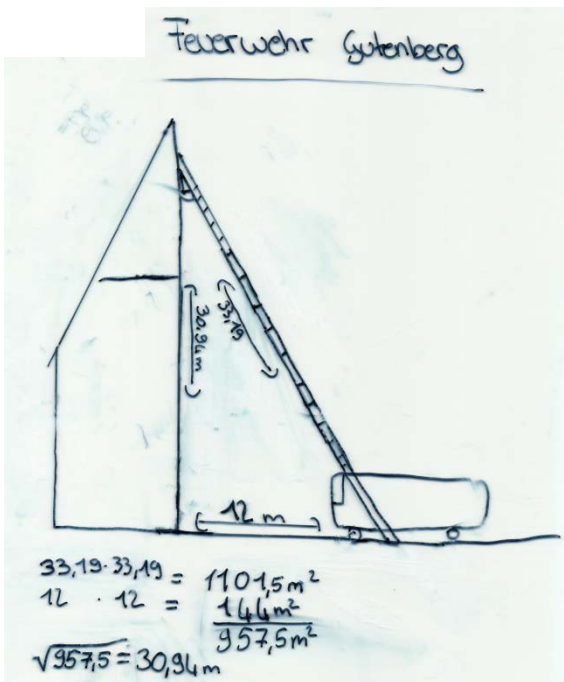 Feuerwehr Gutenberg
33,19
30,94m
12 m
33,19·33,19 = 1101,5m²
12 · 12 = 144m²
957,5m²
√957,5 = 30,94m